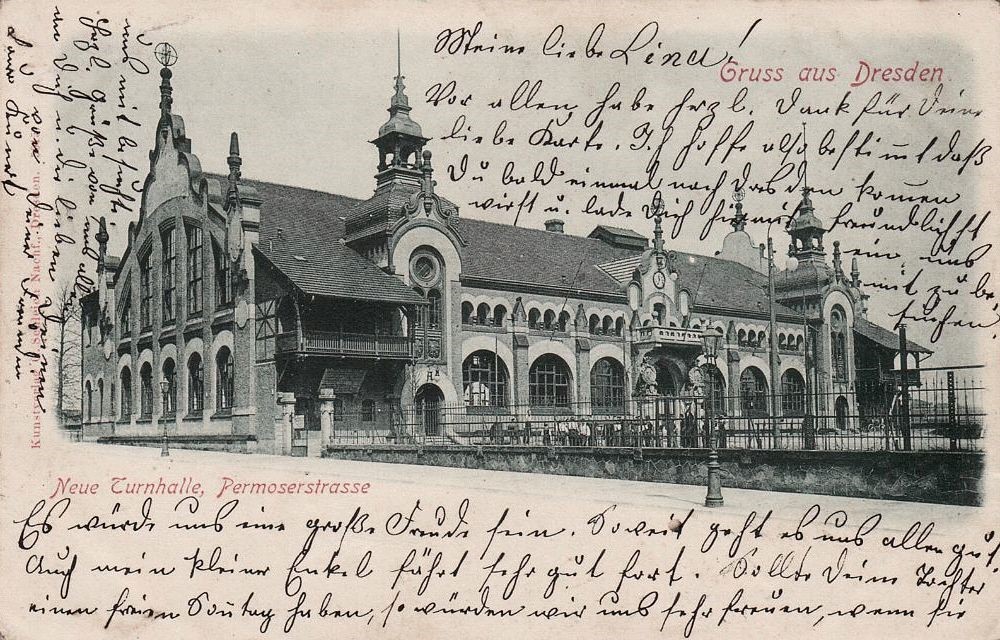 Meine liebe Lina!
Gruss aus Dresden.
Vor allen habe herzl. Dank für Deine
liebe Karte. Ich hoffe also bestimmt daß
Du bald einmal nach Dresden kommen
wirst u. lade Dich hiermit freundlichst
ein uns
mit zu be
suchen.
Neue Turnhalle, Permoserstrasse
Es würde uns eine große Freude sein. Soweit geht es uns allen gut
Auch mein kleiner Enkel fährt sehr gut fort. Sollte Deine Tochter
einen freien Sonntag haben, so würden wir uns sehr freuen, wenn sie
uns mit besuchte
Herzl. Grüße von uns allen
an Dich u. die lieben
Nachf., Dresden.